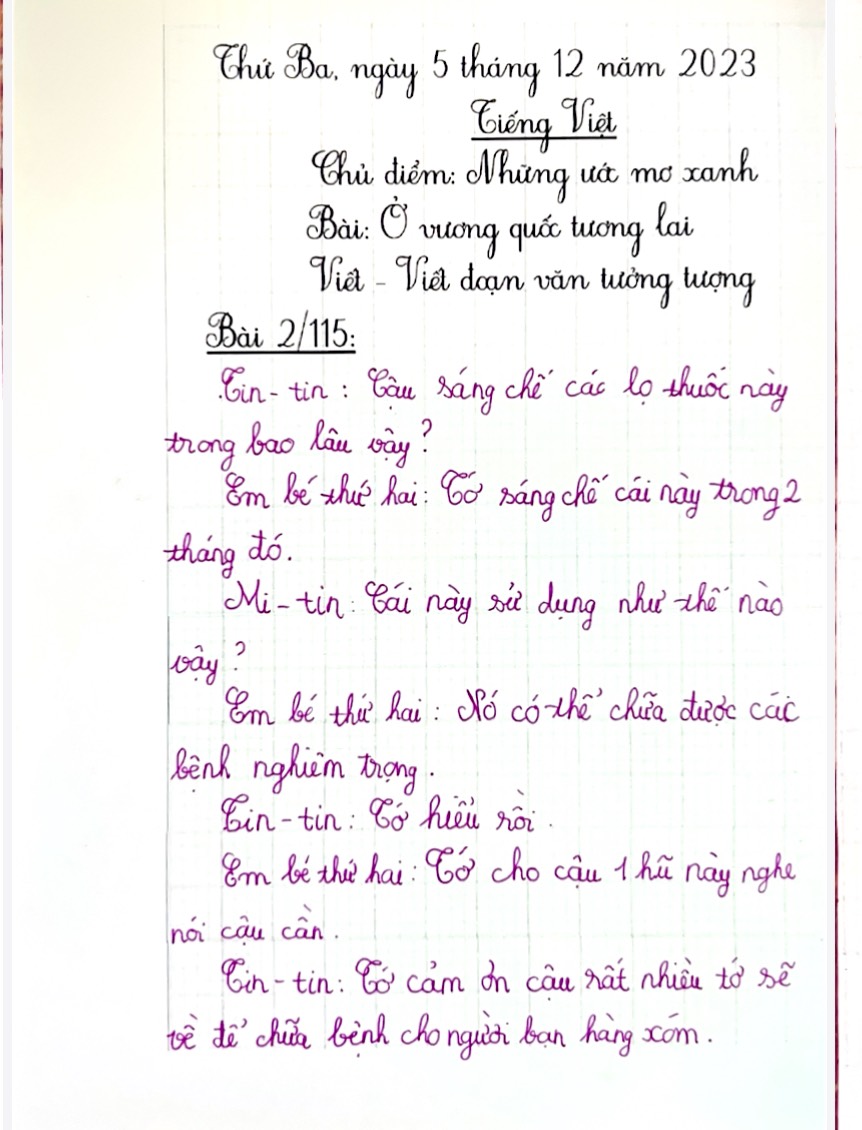 Thứ Ba, ngày 5 tháng 12 năm 2023
Tiếng Việt
Chủ điểm: Những ước mơ xanh
Bài: Ở vương quốc tương lai
Viết - Viết đoạn văn tưởng tượng
Bài 2/115:
Tin - tin : Cậu sáng chế các lọ thuốc này
trong bao lâu vậy?
Em bé thứ hai: Tớ sáng chế cái này trong 2
tháng đó.
Mi - tin: Cái này sử dụng như thế nào
vậy?
Em bé thứ hai : Nó có thể chữa được các
bệnh nghiêm trọng.
Tin - tin: Tớ hiểu rồi.
Em bé thứ hai: Tớ cho cậu 1 hũ này nghe
nói cậu cần.
Tin - tin: Tớ cảm ơn cậu rất nhiều tớ sẽ
về để chữa bệnh cho người bạn hàng xóm.